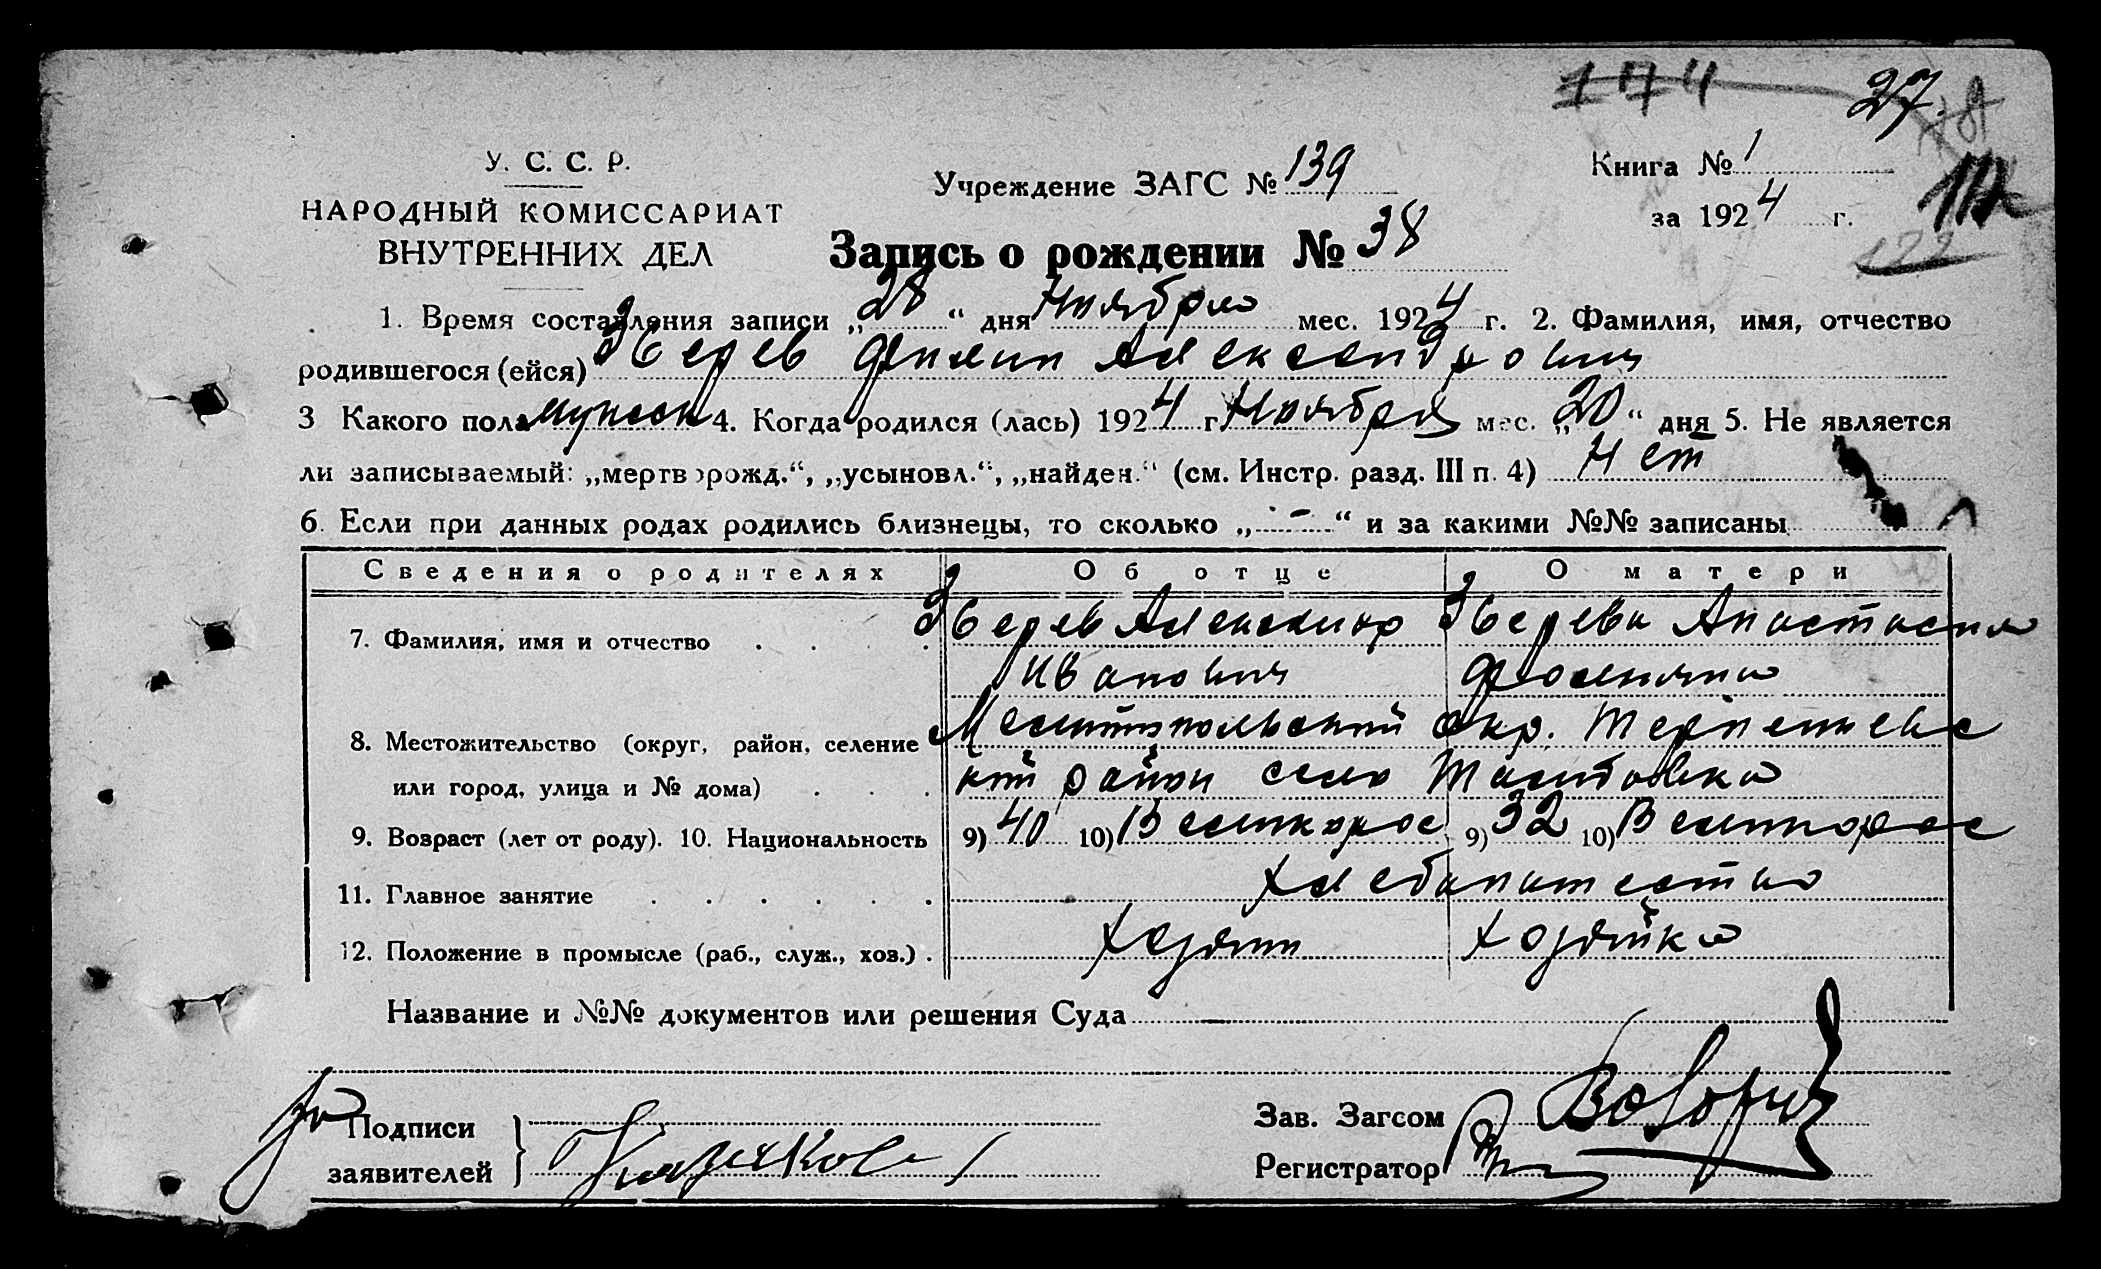 174 27.
У. С. С. Р.
НАРОДНЫЙ КОМИССАРИАТ
ВНУТРЕННИХ ДЕЛ
Учреждение ЗАГС № 139
Книга № 1
за 1924 г.
122
Запись о рождении № 38
1. Время составления записи „28“ дня Ноября мес. 1924 г. 2. Фамилия, имя, отчество
родившегося (ейся) Зверев Филип Александрович
3 Какого пола мужск 4. Когда родился (лась) 1924 г. Ноября мес. „20“ дня 5. Не является
ли записываемый: „мертворожд.“, „усыновл.“, „найден.“ (см. Инстр. разд. III п. 4) Нет
6. Если при данных родах родились близнецы, то сколько „-“ и за какими №№ записаны
Сведения о родителях Об отце О матери
7. Фамилия, имя и отчество Зверев Александр Зверева Анастасия
Иванович
8. Местожительство (округ, район, селение Мелитопольский окр. Терпениевс
или город, улица и № дома) кий район село
9. Возраст (лет от роду). 10. Национальность 9) 40 10) Великорос 9) 32 10) Великорос
11. Главное занятие Хлебопашество
12. Положение в промысле (раб., служ., хоз.) Хозяин Хозяйка
Название и №№ документов или решения Суда
Подписи
заявителей
Зав. Загсом
Регистратор